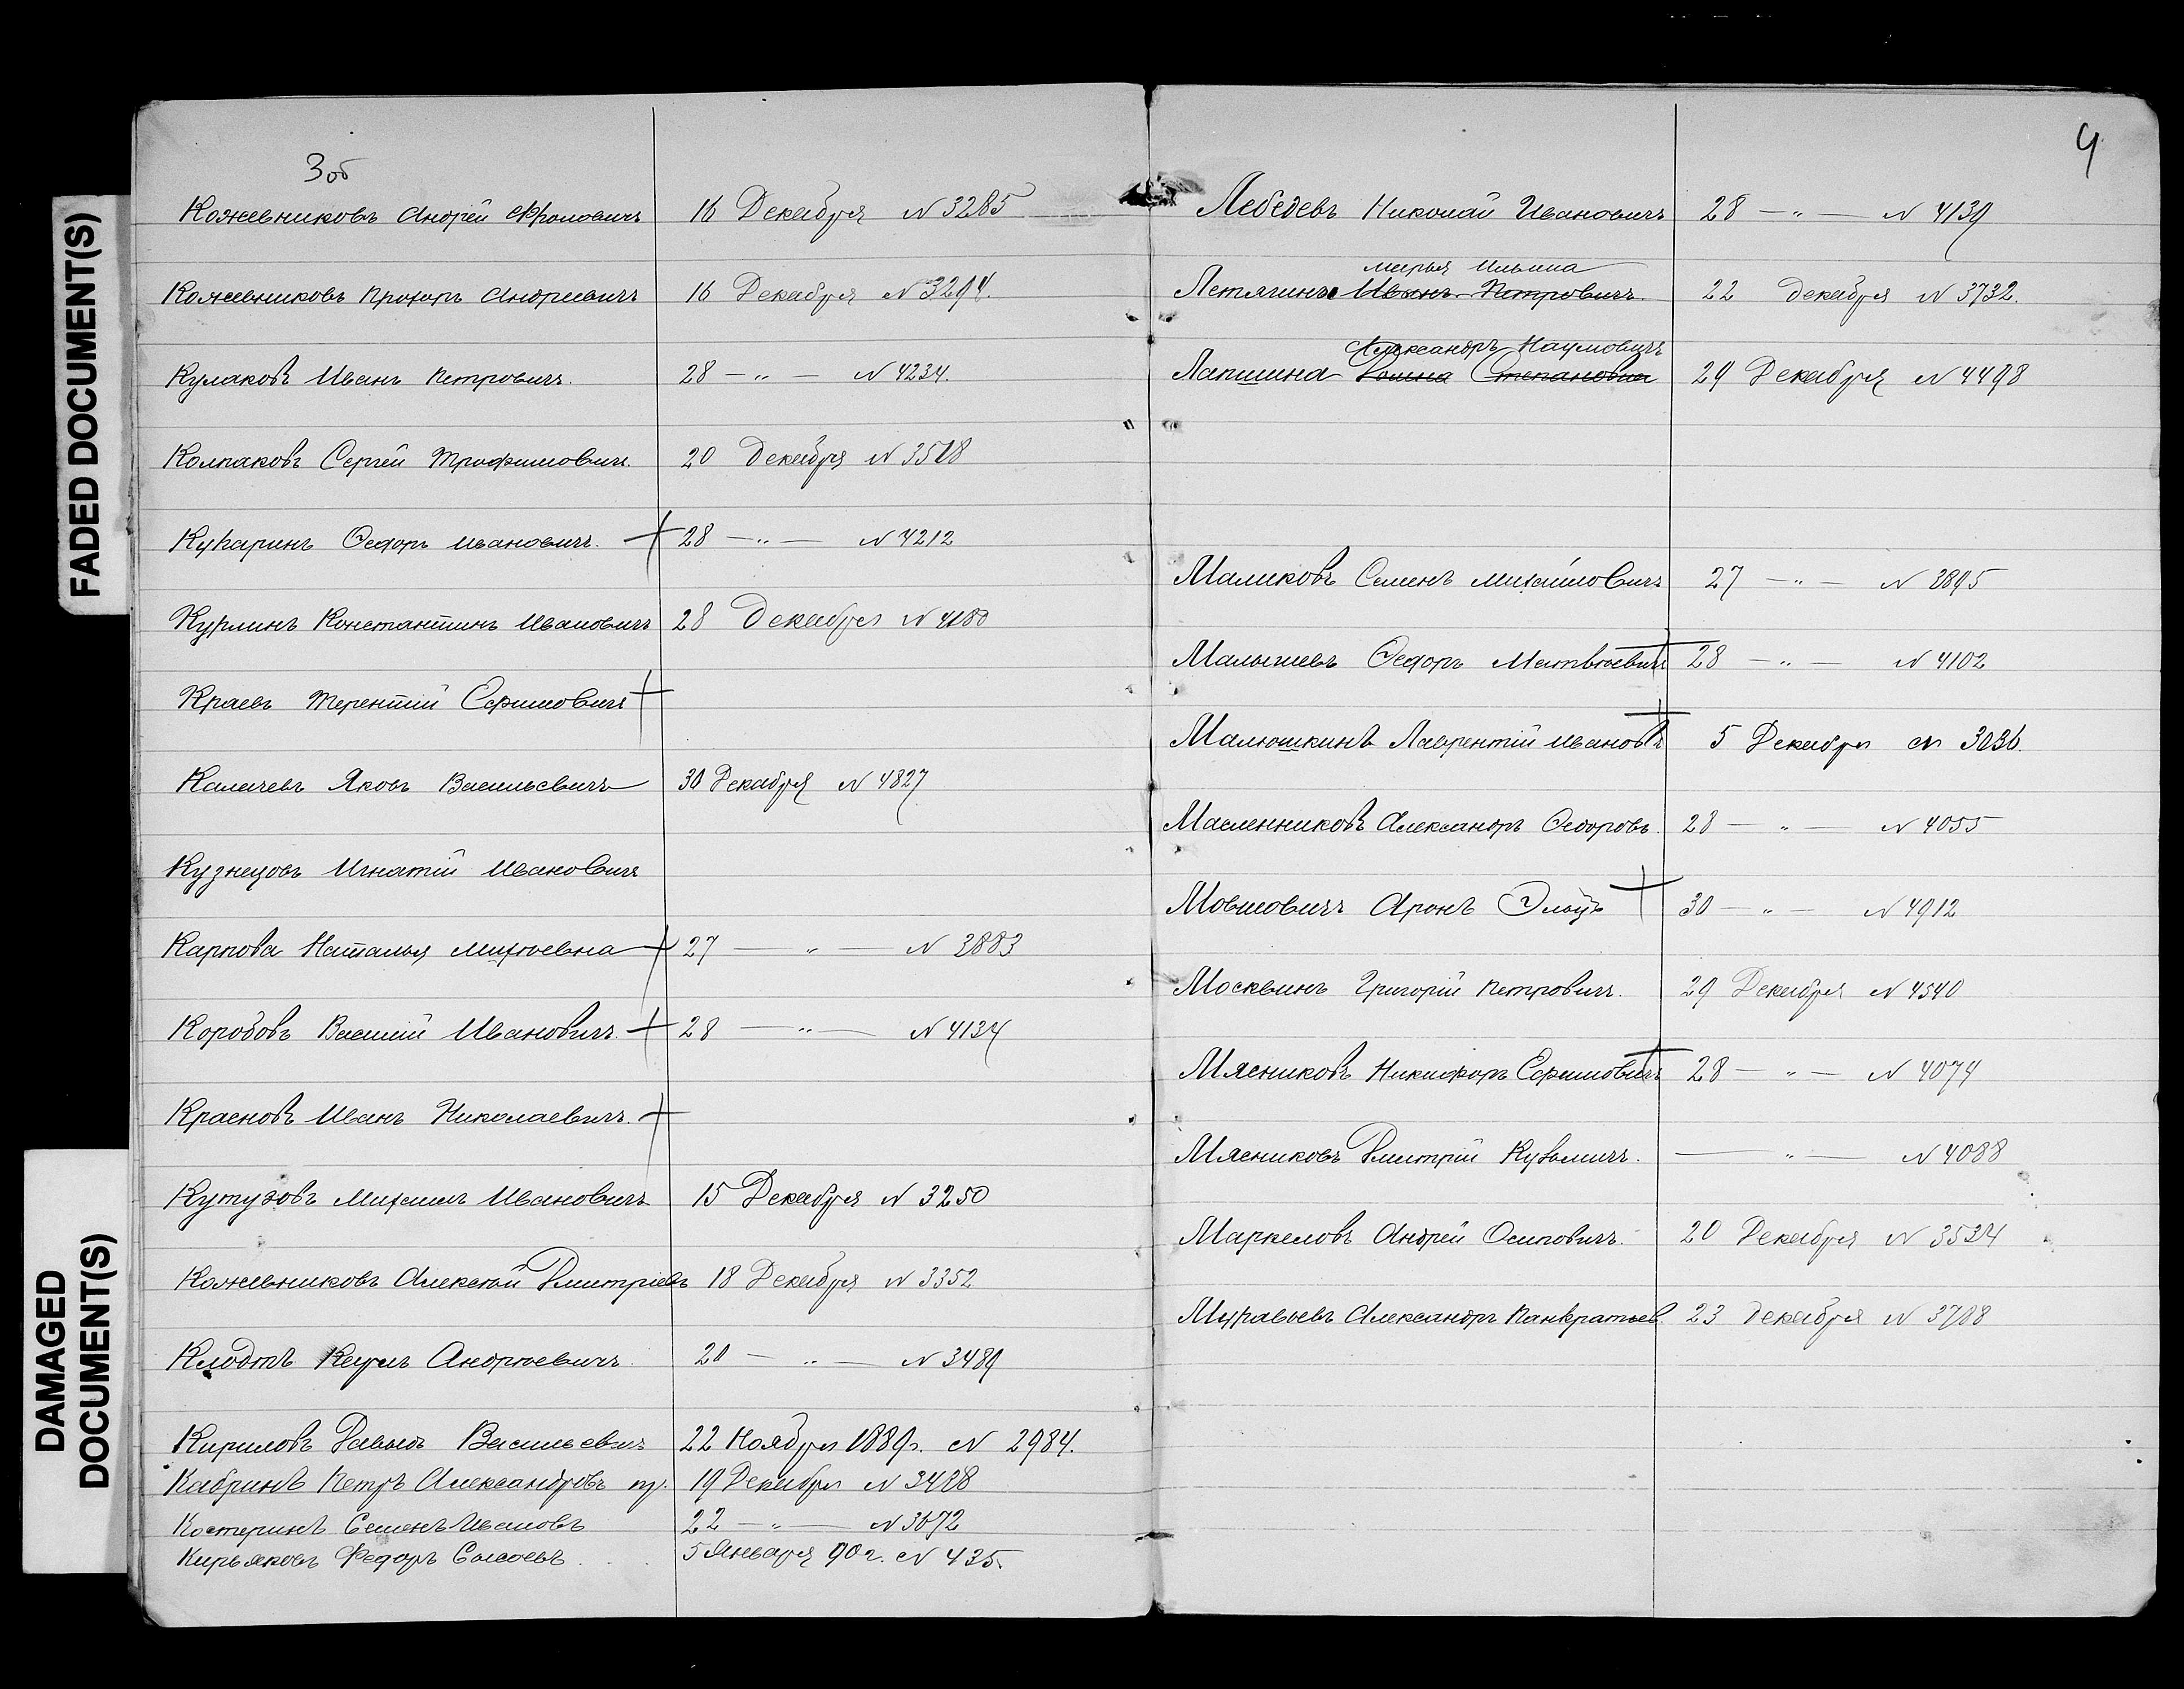 FADED DOCUMENT(S)
DAMAGED
DOCUMENT(S)
3об
Кожевниковъ Андрей Фроловичъ 16 Декабря N 3285
Кожевниковъ Прохоръ Андреевичъ 16 Декабря N 3294.
Кулаковъ Иванъ Петровичъ. 28 — " — N 4234.
Колпаковъ Сергей Трофимовичъ. 20 Декабря N 3518
Кухаринъ Ѳедоръ Ивановичъ. + 28 — " — N 4212
Курлинъ Константинъ Ивановичъ 28 Декабря N 4180
Краевъ Терентій Ефимовичъ +
Калачевъ Яковъ Васильевичъ 30 Декабря N 4827
Кузнецовъ Игнатій Ивановичъ
Карпова Наталья Михѣевна + 27 — " — N 3883
Коробовъ Василій Ивановичъ. + 28 — " — N 4134
Красновъ Иванъ Николаевичъ. +
Кутузовъ Михаилъ Ивановичъ 15 Декабря N 3250
Кожевниковъ Алексѣй Дмитріевъ 18 Декабря N 3352
Клодтъ Андрѣевичъ. 20 — " — N 3489
Кириловъ Давыдъ Васильевичъ 22 Ноября 1889г. N 2984.
Кабринъ Петръ Александровъ 19 Декабря N 3428
Костеринъ Семенъ Ивановъ 22 — " — N 3672
Кирьяковъ Федоръ Сысоевъ 5 Января 90 г. N 435.
4
Лебедевъ Николай Ивановичъ 28 — " — N 4139
Марья Ильина
Летягинъ Иванъ Петровичъ. 22 Декабря N 3732.
Александръ Наумовичъ
Лапшина Степановна 29 Декабря N 4498
Маликовъ Семенъ Михайловичъ 27 — " — N 3895
Малышевъ Ѳедоръ Матвѣевичъ + 28 — " — N 4102
Малюшкинъ Лаврентій Ивановъ + 5 Декабря N 3036.
Масленниковъ Александръ Ѳедоровъ. 28 — " — N 4055
Мовшовичъ Аронъ + 30 — " — N 4912
Москвинъ Григорій Петровичъ. 29 Декабря N 4540
Мясниковъ Никифоръ Ефимовичъ + 28 — " — N 4074
Мясниковъ Дмитрій Кузьмичъ. — " — N 4088
Маркеловъ Андрей Осиповичъ. 20 Декабря N 3534
Муравьевъ Александръ Панкратьев. 23 Декабря N 3788